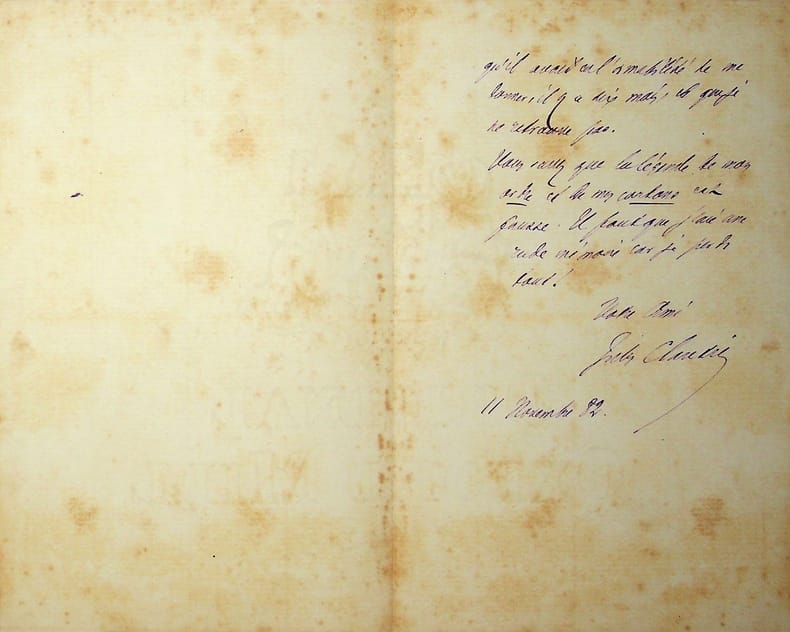 qu'il avait eu l'amabilité de me
donner il y a dix mois et que je
ne retrouve pas.
Vous savez que la légende de mon
ordre et de mes cartons est
fausse. Il faut que j'aie une
rude mémoire car je perds
tout !
Votre Ami
Jules Claretie
11 Novembre 82.